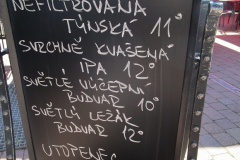 NEFILTROVANÁ
TÝNSKÁ 11°
SVRCHNĚ KVAŠENÁ
IPA 12°
SVĚTLÉ VÝČEPNÍ
BUDVAR 10°
SVĚTLÝ LEŽÁK
BUDVAR 12°
UTOPENEC